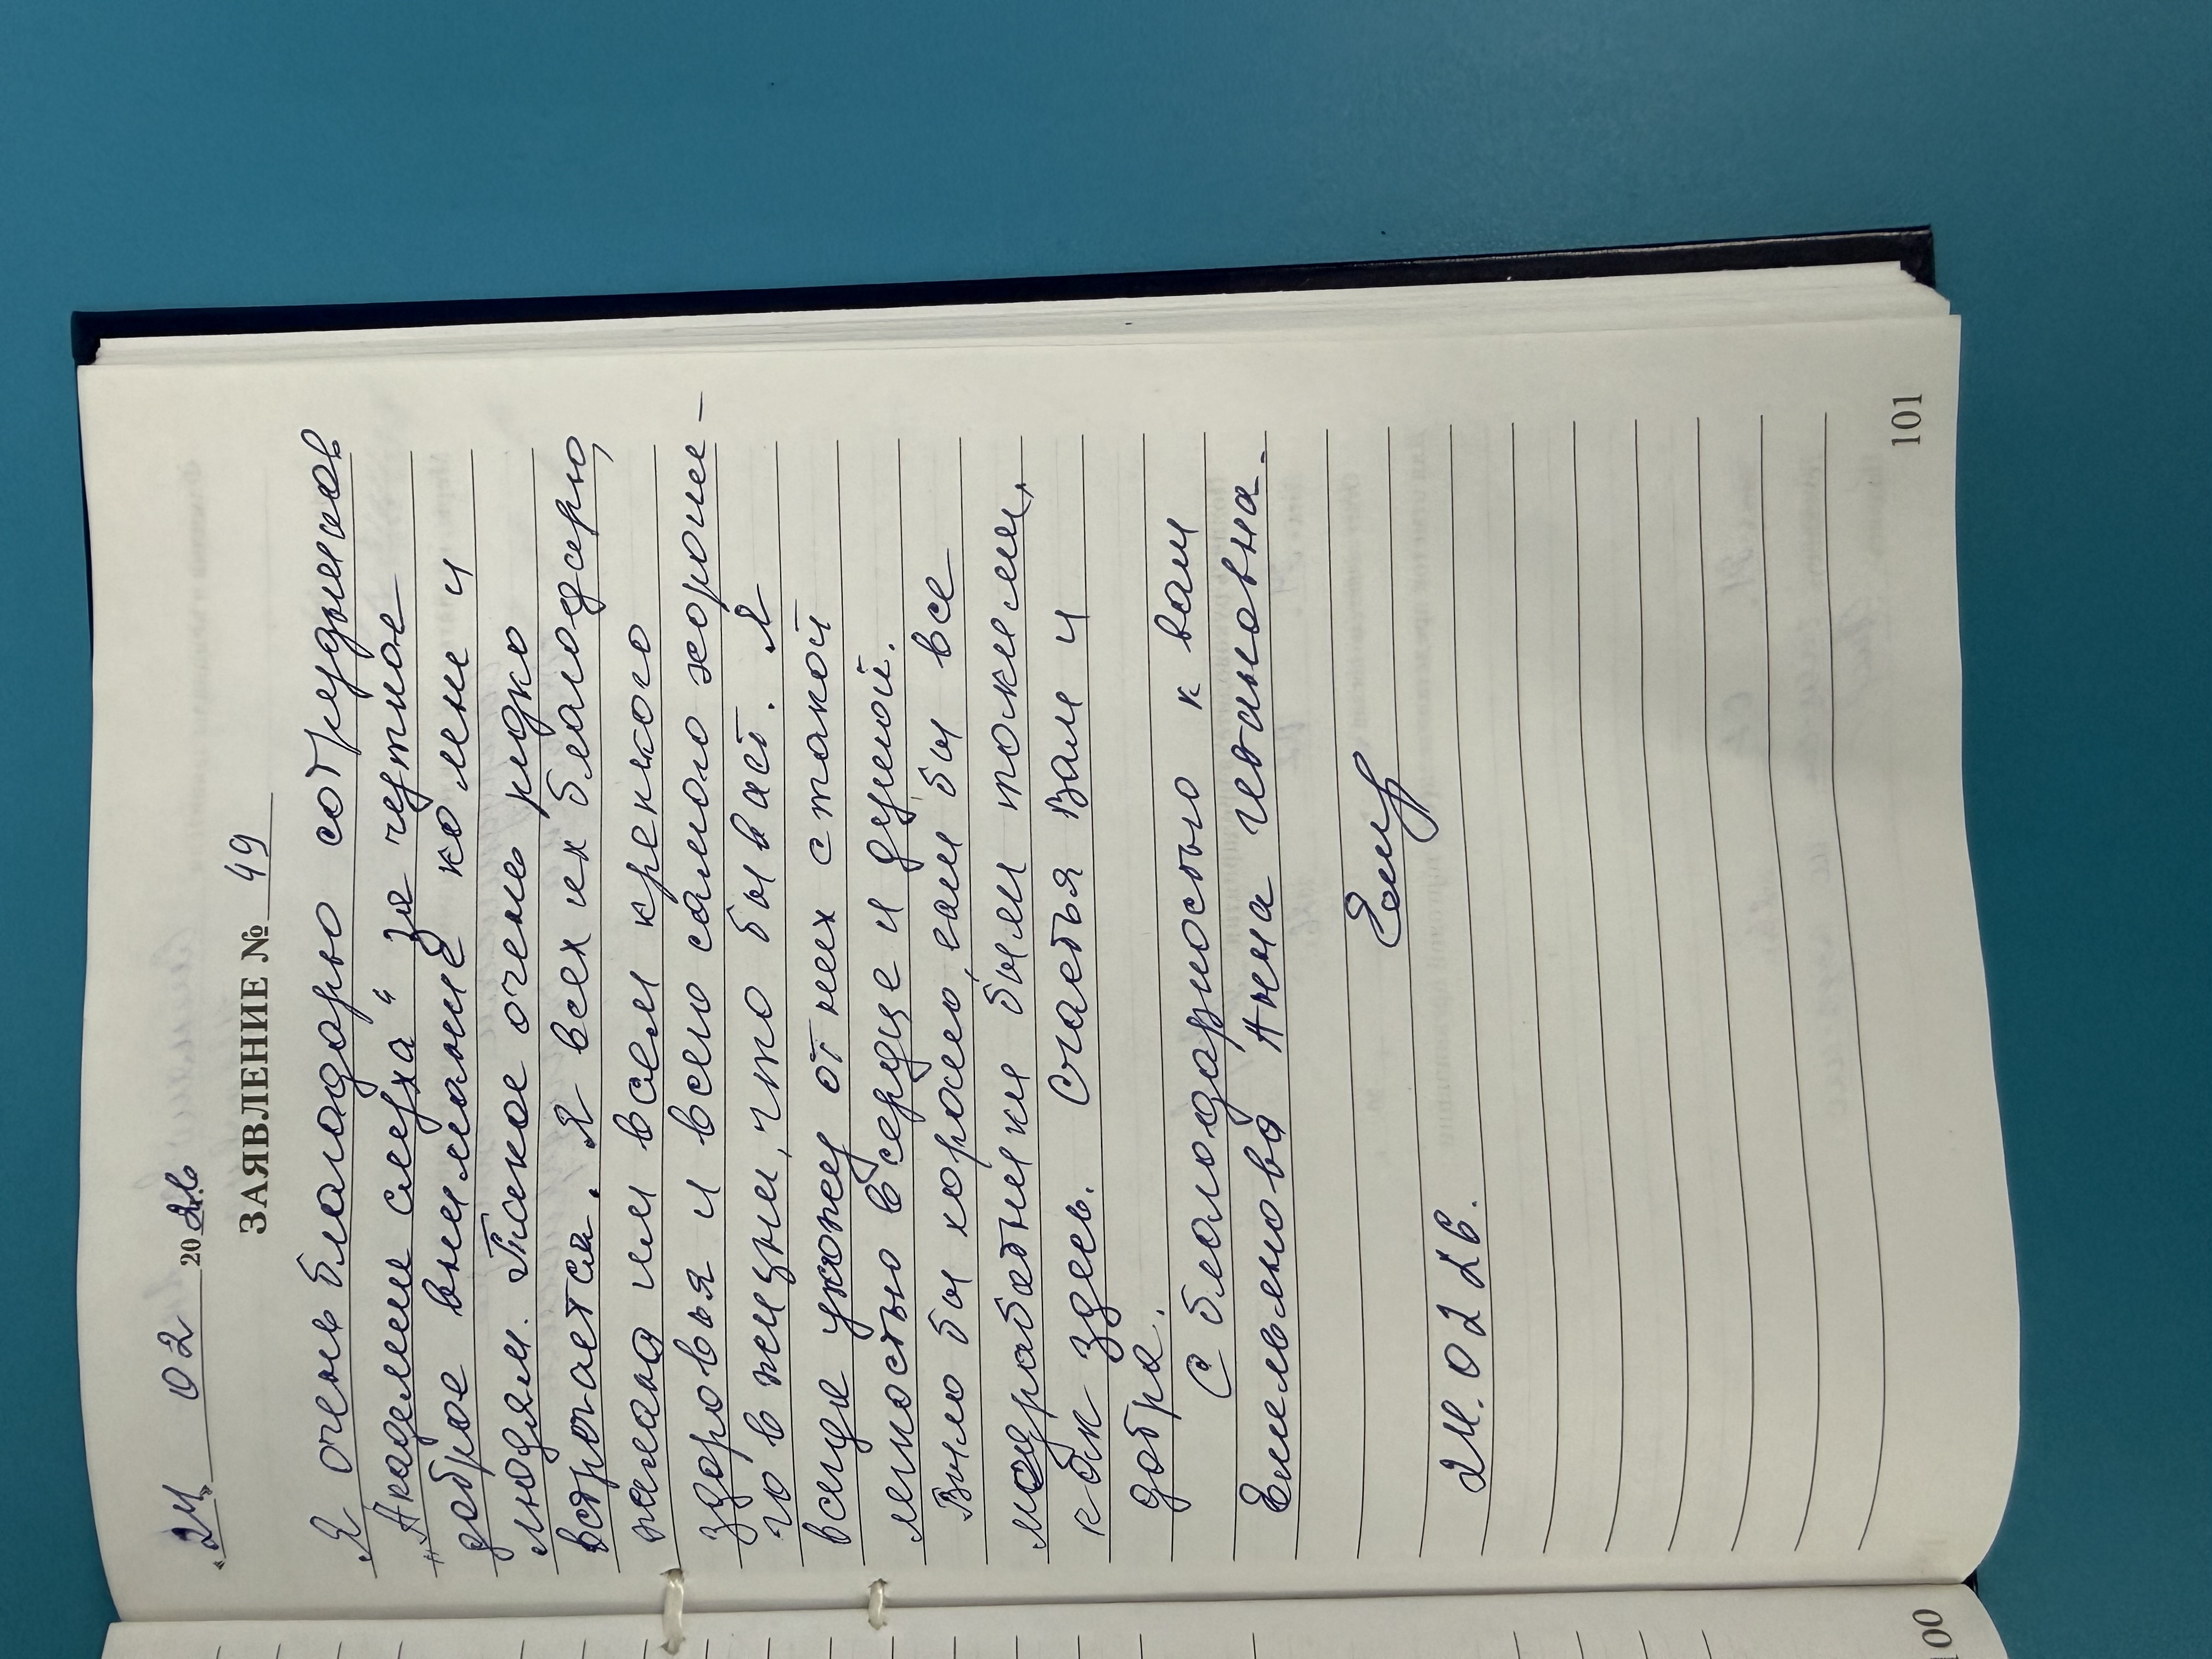 "24" 02 2026
ЗАЯВЛЕНИЕ № 49
Я очень благодарю сотрудников
„Академии слуха" за чуткое
доброе внимание ко мне и
людям. Такое очень редко
встречается. Я всех их благодарю,
желаю им всем крепкого
здоровья и всего самого хороше-
го в жизни, что бывает. Я
всегда ухожу от них с такой
легкостью в сердце и душой.
Было бы хорошо, если бы все
медработники были такими,
как здесь. Счастья Вам и
добра.
С благодарностью к вам
Емельянова Анна
24.02.26.
101
100